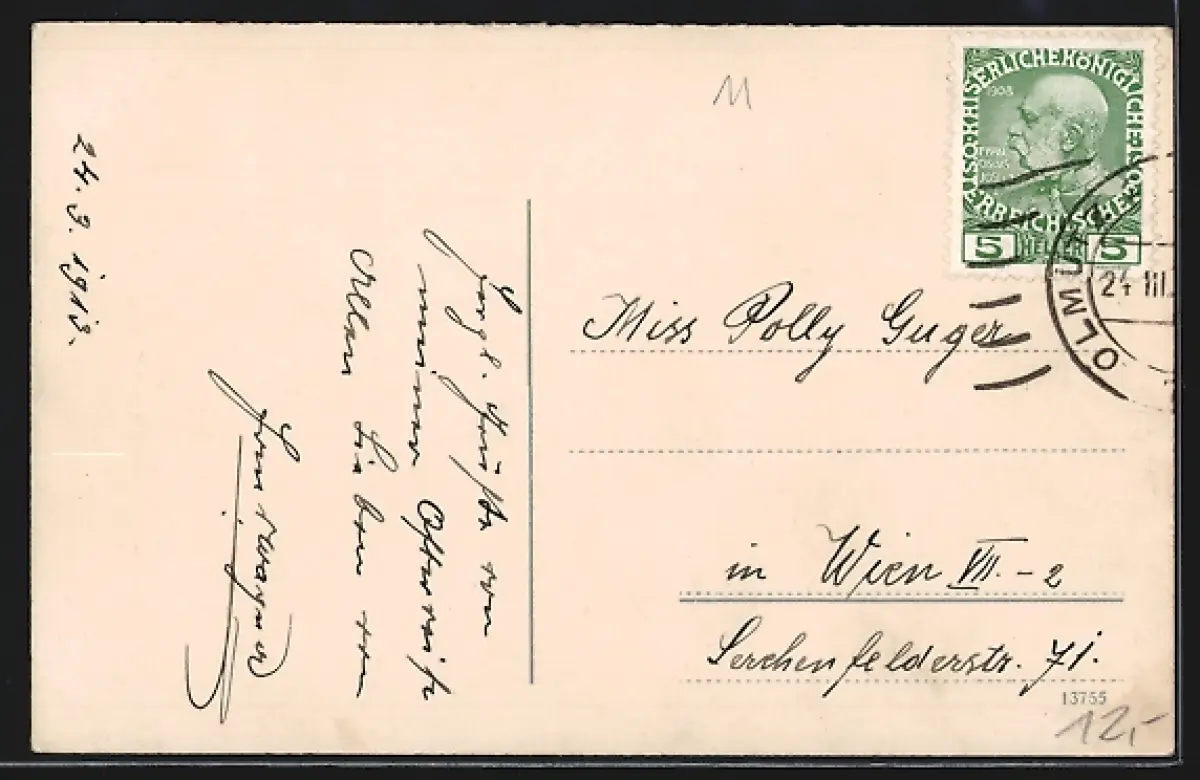 24. 3. 1913.
Herzl. Grüße von
meiner Osterreise
Allen Lieben von
M
KAISERLICHE KÖNIGLICHE ÖSTERREICHISCHE POST
1908
FRANZ
JOSEF I
5 HELLER 5
OLMÜTZ
24 III.
Miss Polly Guger
in Wien VII. - 2
Lerchenfelderstr. 71.
13755
12,-